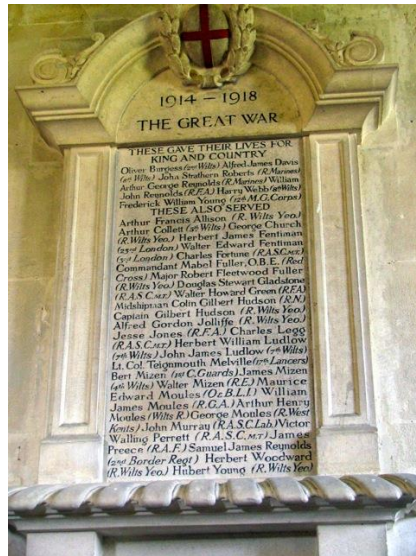 1914 – 1918
THE GREAT WAR
THESE GAVE THEIR LIVES FOR
KING AND COUNTRY
Oliver Burgess (2nd Wilts) Alfred James Davis
(1st Wilts) John Strathern Roberts (R.Marines)
Arthur George Reynolds (R.Marines) William
John Reynolds (R.F.A) Harry Webb (2nd Wilts)
Frederick William Young (12th M.G. Corps)
THESE ALSO SERVED
Arthur Francis Allison (R. Wilts Yeo.)
Arthur Collett George Church
(R. Wilts Yeo.) Herbert James Fentiman
(23rd London) Walter Edward Fentiman
London) Charles Fortune (R.A.S.C. M.T.)
Commandant Mabel Fuller, O.B.E. (Red
Cross) Major Robert Fleetwood Fuller
(R. Wilts Yeo) Douglas Stewart Gladstone
(R.A.S.C. M.T.) Walter Howard Green (R.F.A)
Midshipman Colin Gilbert Hudson (R.N)
Captain Gilbert Hudson (R. Wilts Yeo)
Alfred Gordon Jolliffe (R. Wilts Yeo.)
Jesse Jones (R.F.A) Charles Legg
(R.A.S.C. M.T.) Herbert William Ludlow
(7th Wilts) John James Ludlow (7th Wilts)
Lt. Col. Teignmouth Melville (17th Lancers)
Bert Mizen (1st C. Guards) James Mizen
(4th Wilts) Walter Mizen (R.E) Maurice
Edward Moules (O & B.L.I) William
James Moules (R.G.A.) Arthur Henry
Moules (Wilts R.) George Moules (R. West
Kents) John Murray (R.A.S.C. Lab.) Victor
Walling Perrett (R.A.S.C. M.T.) James
Preece (R.A.F.) Samuel James Reynolds
(2nd Border Regt) Herbert Woodward
(R. Wilts Yeo.) Hubert Young (R. Wilts Yeo)